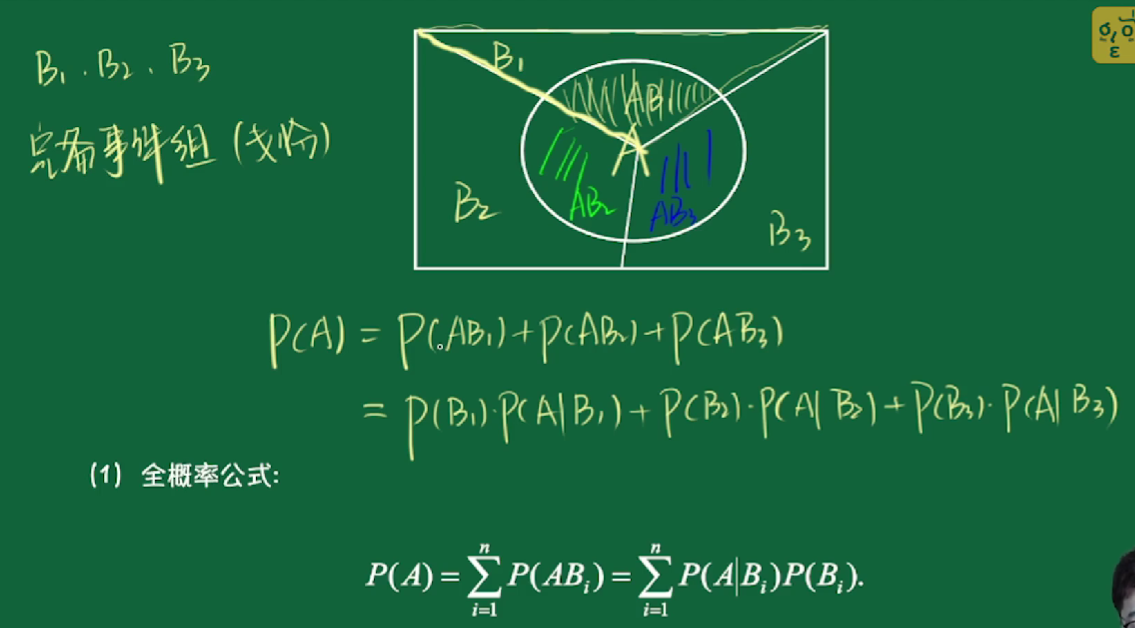 B₁、B₂、B₃
完备事件组(划分)
B₁
AB₁
A
B₂
AB₂
AB₃
B₃
P(A) = P(AB₁)+P(AB₂)+P(AB₃)
= P(B₁)·P(A|B₁)+P(B₂)·P(A|B₂)+P(B₃)·P(A|B₃)
(1) 全概率公式:
P(A)=∑_{i=1}^{n}P(AB_i)=∑_{i=1}^{n}P(A|B_i)P(B_i).